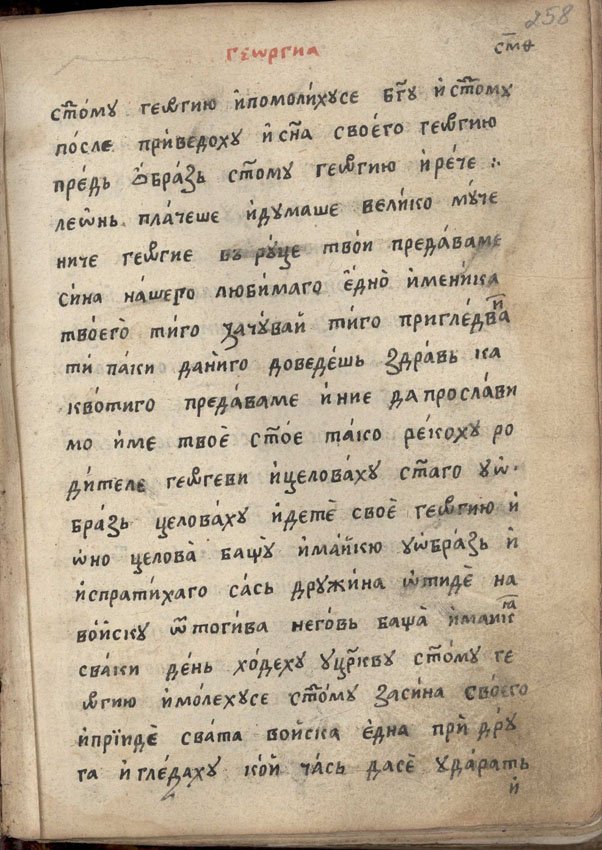 258
ГЕѠРГИА
сл҃ѳ
ст҃о́му геѡ҆гию и҆помоли́хусе бг҃у и҆ст҃о́му
по́сле приведоху и҆сн҃а своего геѡ҆гию
пре́дь ѻ҆бра́зь ст҃ому геѡ҆гию и҆ре́че :.
леѡ҆нь пла́чеше и҆ду́маше вели́ко му́че
ниче геѡ҆гие въ ру́це твои преда́ваме
си́на на́шего люби́маго е҆дно̀ и҆мени́ка
твоего̀ ти́го зачу́вай ти́го пригле́двай
ти па́ки дани́го доведе́шь здра́вь ка
кво́тиго преда́ваме и҆ние да просла́ви
мо и҆ме твоѐ ст҃ое та́ко реко́ху ро
ди́теле геѡ҆геви и҆целова́ху ст҃аго уѡ҆
бра́зь целова́ху и҆детѐ своѐ геѡ҆гию и҆
ѡ҆но целова̀ бащу̀ и҆ма́йкю уѡ҆бра́зь и҆
и҆спрати́хаго са́сь дружи́на ѿидѐ на
во́йску ѿтоги́ва него́вь баща̀ и҆маика
сва́ки де́нь хо́деху уцр҃кву ст҃ому ге
ѡ҆гию и҆мо́лехусе ст҃ому заси́на сво́его
и҆прїидѐ сва́та войска е҆дна при̏ дру́
га и҆гле́даху ко́й ча́сь дасѐ уда́рать
и҆